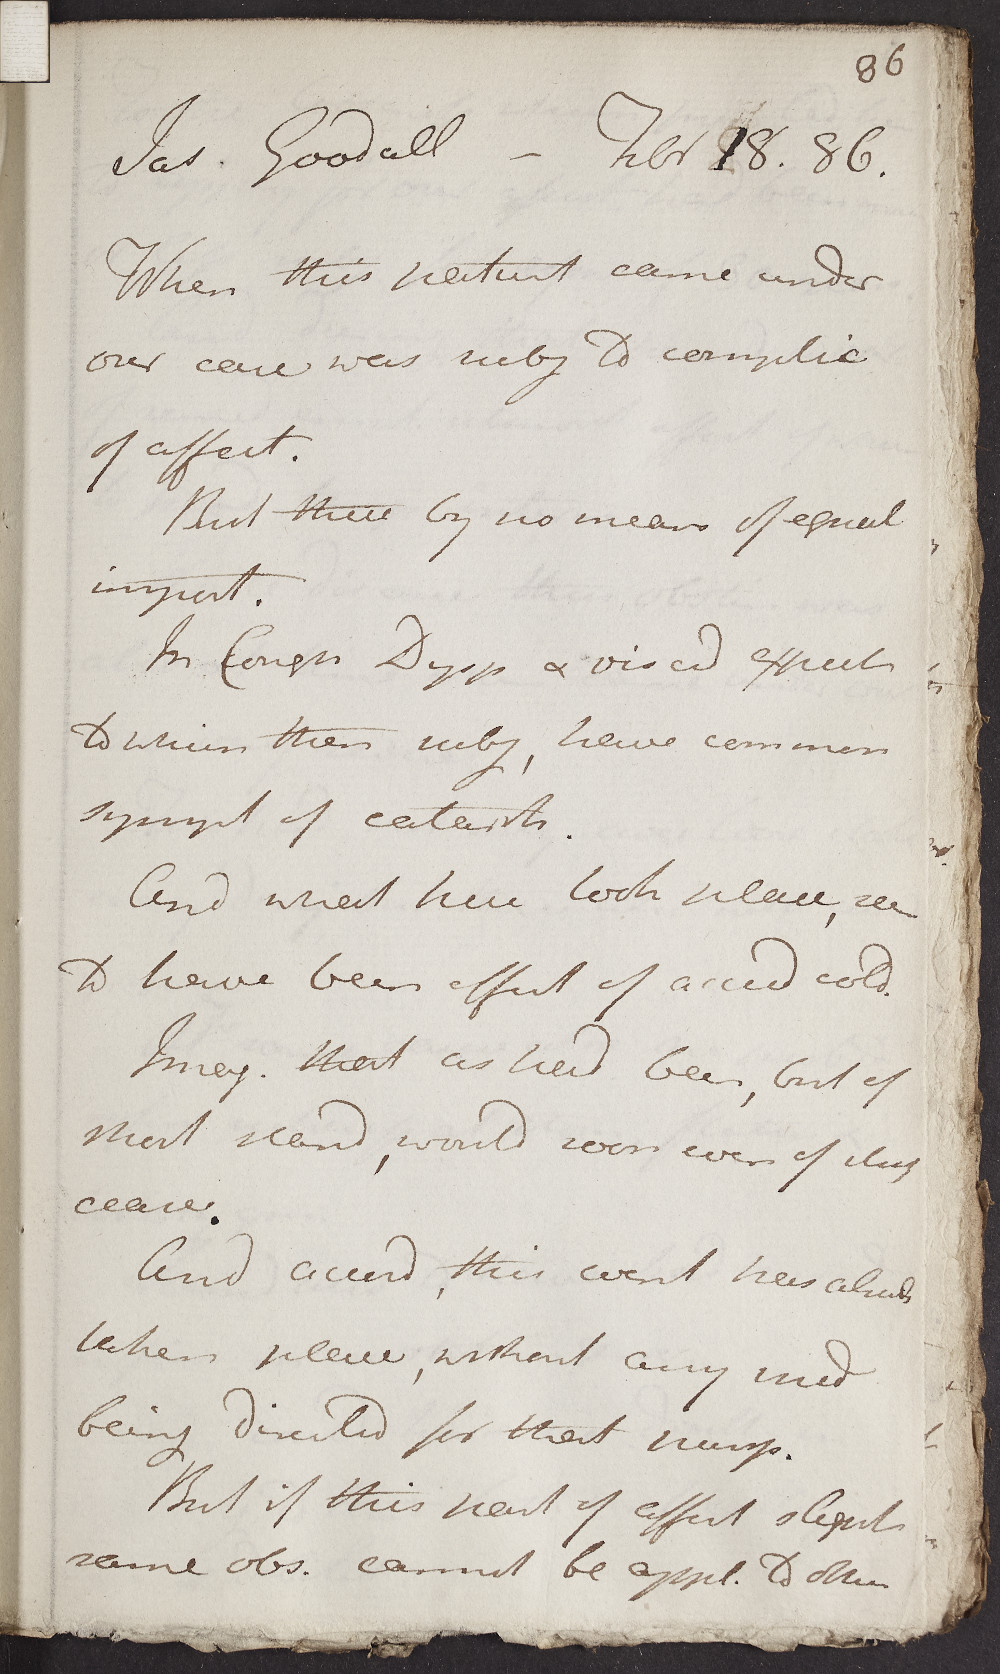 86
Jas. Goodall – Febr 18. 86.
When this patient came under
our care was subj to complic
of affect.
But these by no means of equal
import.
In Cough Dysp & viscid expect
to which then subj, have common
sympt of catarrh.
And what here took place, see
to have been effect of accid cold.
Imag. that as had been, but of
short stand, would soon even of
cease.
And accord, this event has
taken place, without any med
being directed for that purp.
But if this part of affect slight
same obs. cannot be appl. to other